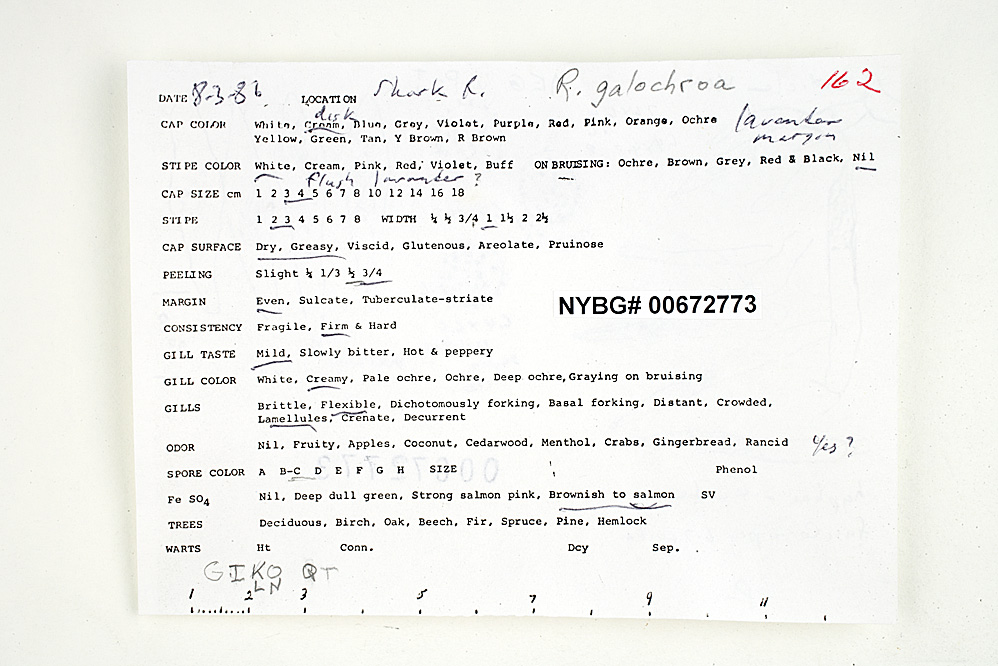 DATE 8-3-86 LOCATION Shark R. R. galochroa 162
disk
CAP COLOR White, Cream, Blue, Grey, Violet, Purple, Red, Pink, Orange, Ochre lavender
Yellow, Green, Tan, Y Brown, R Brown margin
STIPE COLOR White, Cream, Pink, Red, Violet, Buff ON BRUISING: Ochre, Brown, Grey, Red & Black, Nil
flush lavender?
CAP SIZE cm 1 2 3 4 5 6 7 8 10 12 14 16 18
STIPE 1 2 3 4 5 6 7 8 WIDTH ¼ ½ 3/4 1 1½ 2 2½
CAP SURFACE Dry, Greasy, Viscid, Glutenous, Areolate, Pruinose
PEELING Slight ¼ 1/3 ½ 3/4
MARGIN Even, Sulcate, Tuberculate-striate
NYBG# 00672773
CONSISTENCY Fragile, Firm & Hard
GILL TASTE Mild, Slowly bitter, Hot & peppery
GILL COLOR White, Creamy, Pale ochre, Ochre, Deep ochre, Graying on bruising
GILLS Brittle, Flexible, Dichotomously forking, Basal forking, Distant, Crowded,
Lamellules, Crenate, Decurrent
ODOR Nil, Fruity, Apples, Coconut, Cedarwood, Menthol, Crabs, Gingerbread, Rancid Yes?
SPORE COLOR A B-C D E F G H SIZE Phenol
Fe SO4 Nil, Deep dull green, Strong salmon pink, Brownish to salmon SV
TREES Deciduous, Birch, Oak, Beech, Fir, Spruce, Pine, Hemlock
WARTS Ht Conn. Dcy Sep.
GIKO QT
LN
1 2 3 5 7 9 11